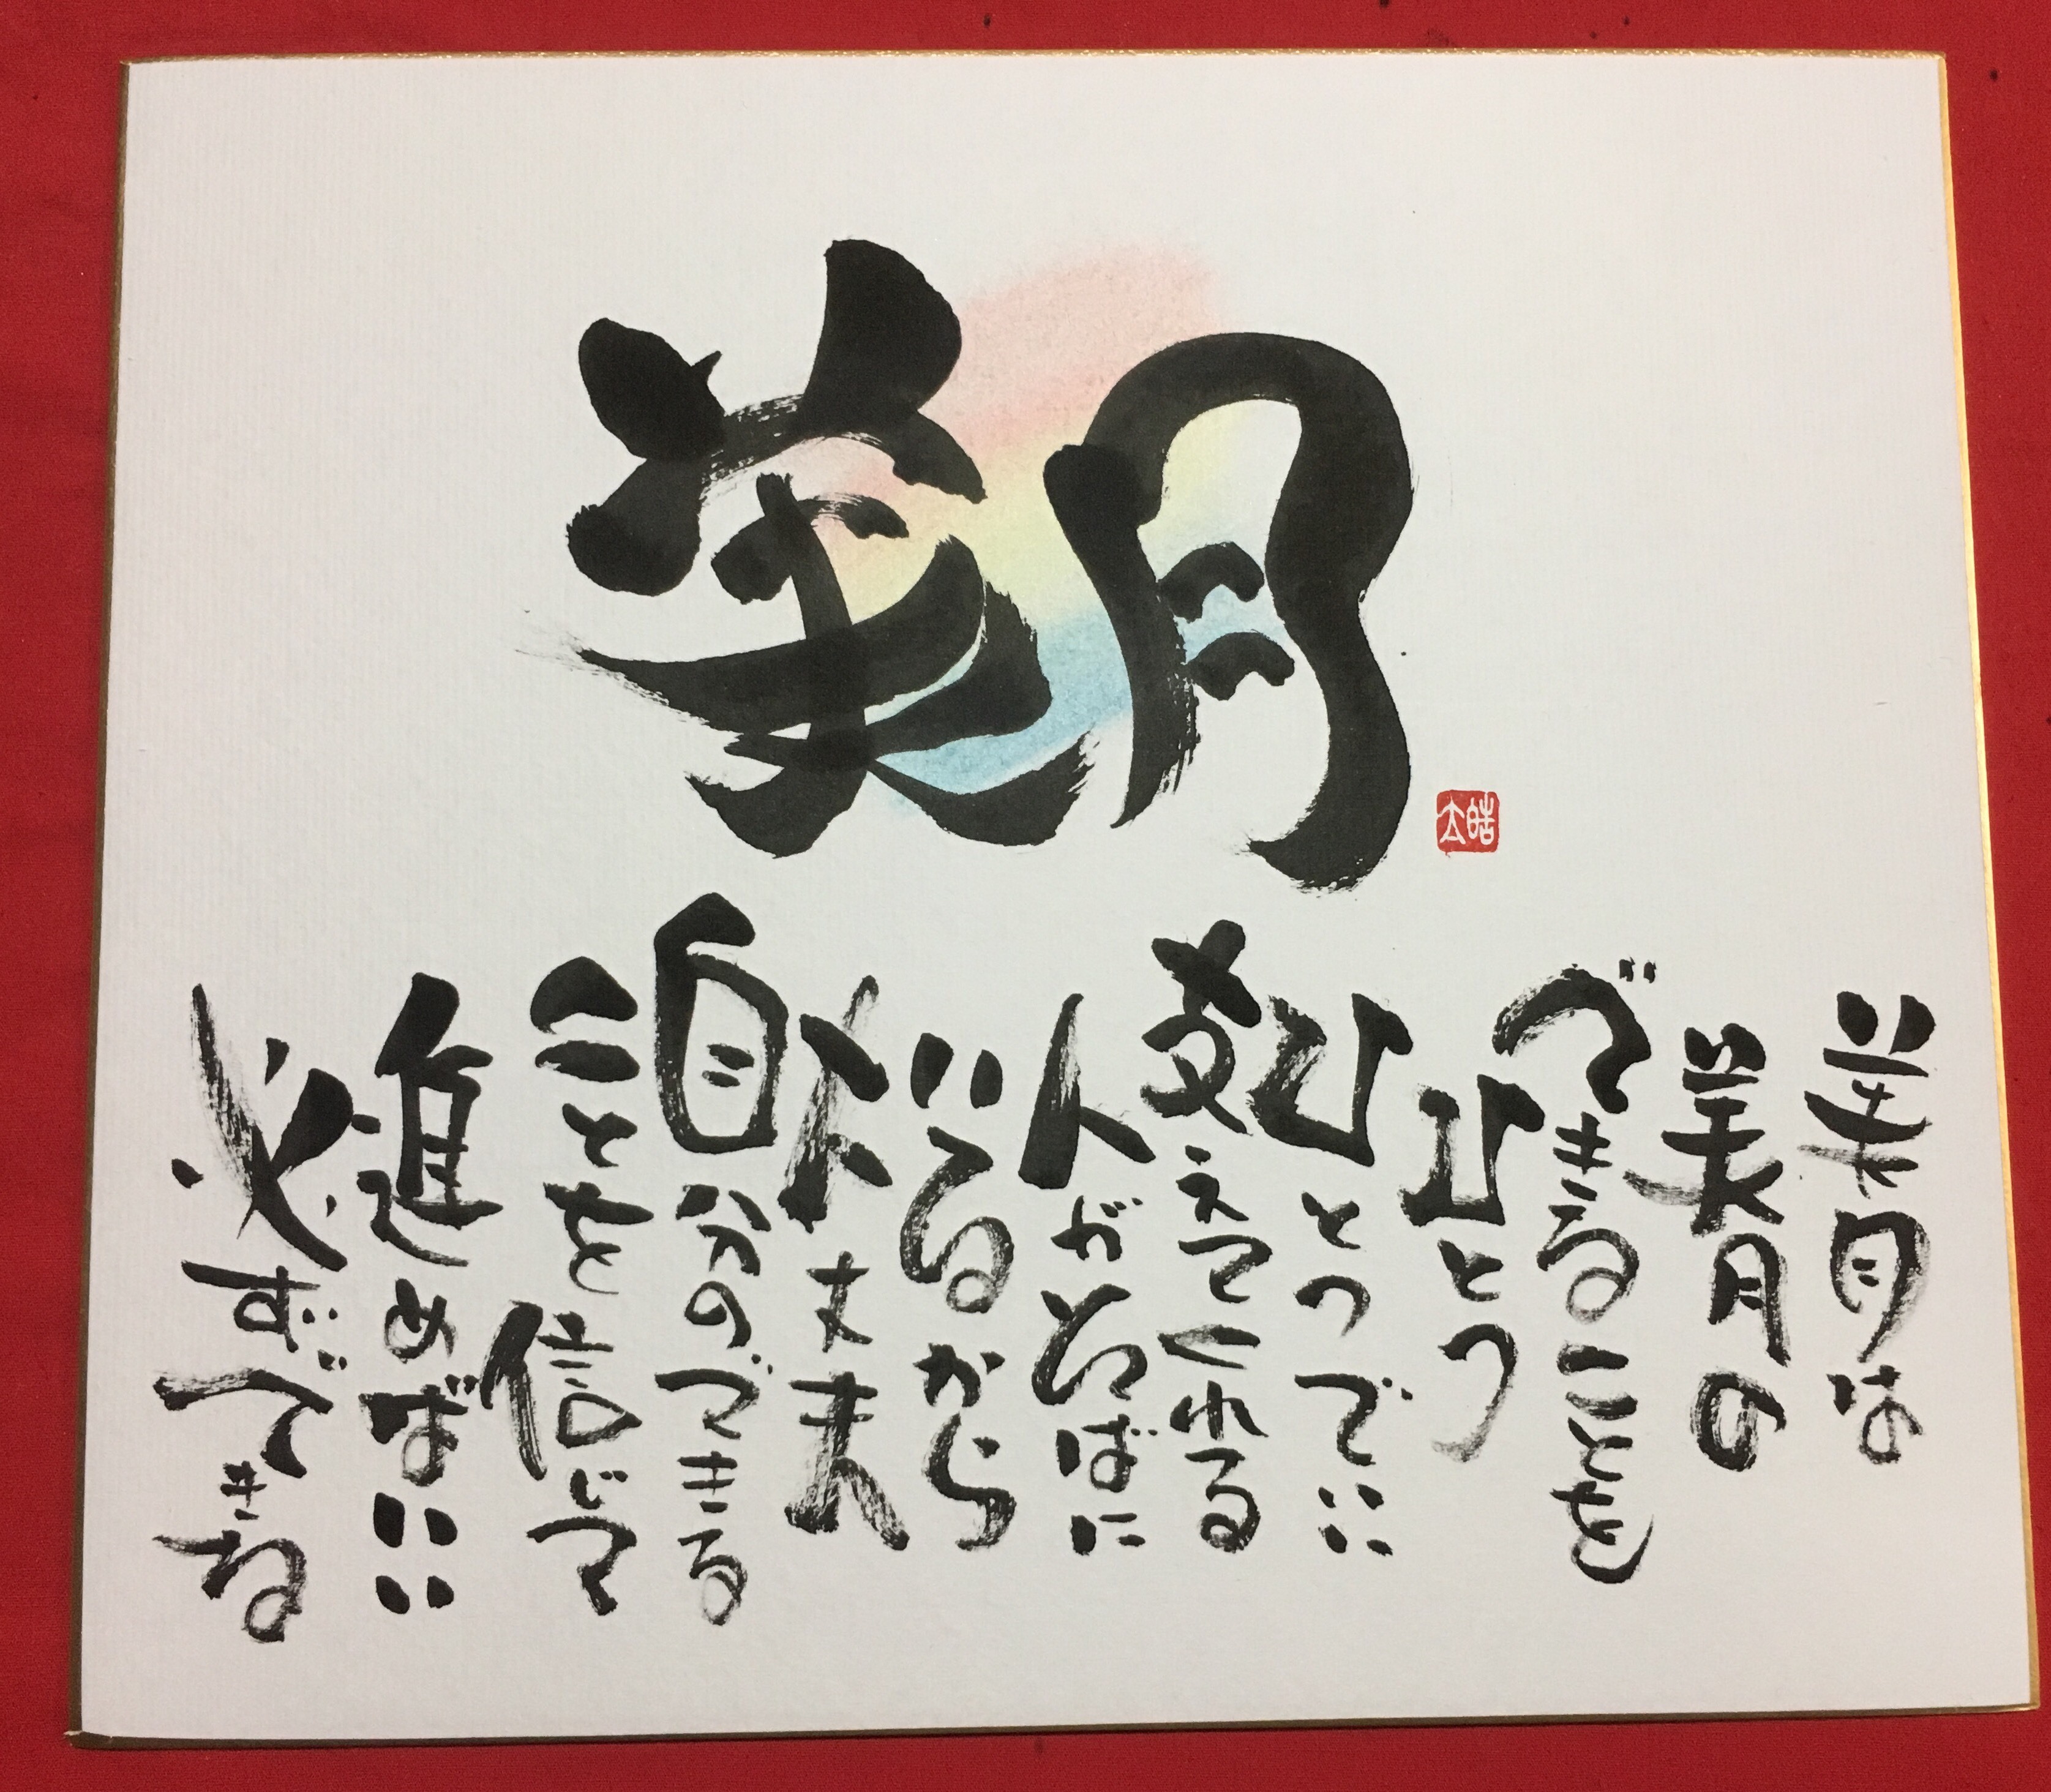 美月
皓太
美月は
美月の
できることを
ひとつ
ひとつでいい
教えてくれる
人がそばに
いるから
大丈夫
自分のできる
ことを信じて
進めばいい
必ずできる